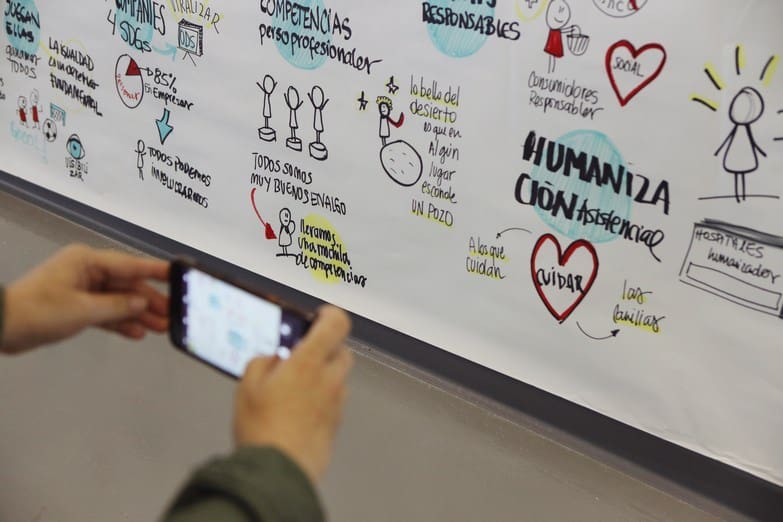 JUEGAN
ELLAS
TODOS
LA IGUALDAD
FUNDAMENTAL
VISIBILI
ZAR
COMPANIES
4 SDGs
VIRALIZAR
ODS
>85%
EN Empresar
TODOS PODEMOS
INVOLUCRARNOS
COMPETENCIAS
personoprofesionaler
TODOS SOMOS
MUY BUENOS EN ALGO
llevamos
una mochila
de competencias
lo bello del
desierto
es que en
Algún
lugar
esconde
UN POZO
RESPONSABLES
CONSUMIDORES
Responsabler
SOCIAL
HUMANIZA
CIÓN Asistencial
A los que
cuidan
CUIDAR
las
familiar
HOSPITALES
humanizador